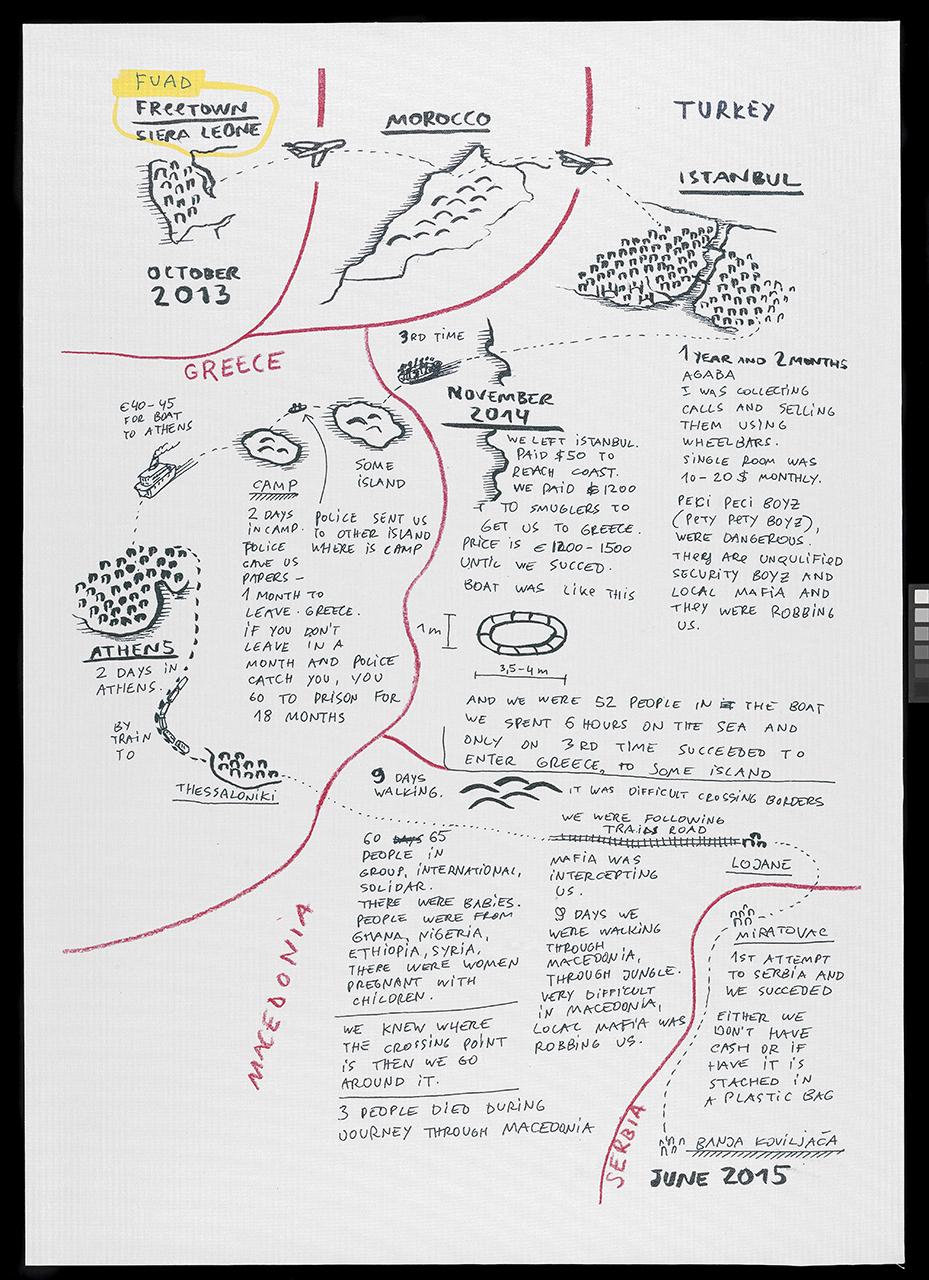 FUAD
FREETOWN
SIERA LEONE
OCTOBER
2013
MOROCCO
TURKEY
ISTANBUL
1 YEAR AND 2 MONTHS
AGABA
I WAS COLLECTING
CALLS AND SELLING
THEM USING
WHEELBARS.
SINGLE ROOM WAS
10-20 $ MONTHLY.
PECI PECI BOYZ
(PETY PETY BOYZ),
WERE DANGEROUS.
THEY ARE UNQULIFIED
SECURITY BOYZ AND
LOCAL MAFIA AND
THEY WERE ROBBING
US.
3RD TIME
NOVEMBER
2014
WE LEFT ISTANBUL.
PAID $50 TO
REACH COAST.
WE PAID $1200
TO SMUGLERS TO
GET US TO GREECE.
PRICE IS €1200-1500
UNTIL WE SUCCED.
BOAT WAS LIKE THIS
1m
3,5-4 m
AND WE WERE 52 PEOPLE IN THE BOAT
WE SPENT 6 HOURS ON THE SEA AND
ONLY ON 3RD TIME SUCCEEDED TO
ENTER GREECE, TO SOME ISLAND
GREECE
SOME
ISLAND
POLICE SENT US
TO OTHER ISLAND
WHERE IS CAMP
CAMP
2 DAYS
IN CAMP.
POLICE
GAVE US
PAPERS -
1 MONTH TO
LEAVE GREECE.
IF YOU DON'T
LEAVE IN A
MONTH AND POLICE
CATCH YOU, YOU
GO TO PRISON FOR
18 MONTHS
€40-45
FOR BOAT
TO ATHENS
ATHENS
2 DAYS IN
ATHENS.
BY
TRAIN
TO
THESSALONIKI
MACEDONIA
9 DAYS
WALKING.
IT WAS DIFFICULT CROSSING BORDERS
WE WERE FOLLOWING
TRAINS ROAD
LOJANE
60 DAYS 65
PEOPLE IN
GROUP, INTERNATIONAL,
SOLIDAR.
THERE WERE BABIES.
PEOPLE WERE FROM
GHANA, NIGERIA,
ETHIOPIA, SYRIA,
THERE WERE WOMEN
PREGNANT WITH
CHILDREN.
WE KNEW WHERE
THE CROSSING POINT
IS THEN WE GO
AROUND IT.
3 PEOPLE DIED DURING
JOURNEY THROUGH MACEDONIA
MAFIA WAS
INTERCEPTING
US.
9 DAYS WE
WERE WALKING
THROUGH
MACEDONIA,
THROUGH JUNGLE.
VERY DIFFICULT
IN MACEDONIA,
LOCAL MAFIA WAS
ROBBING US.
SERBIA
MIRATOVAC
1ST ATTEMPT
TO SERBIA AND
WE SUCCEDED
EITHER WE
DON'T HAVE
CASH OR IF
HAVE IT IS
STACHED IN
A PLASTIC BAG
BANJA KOVILJAČA
JUNE 2015